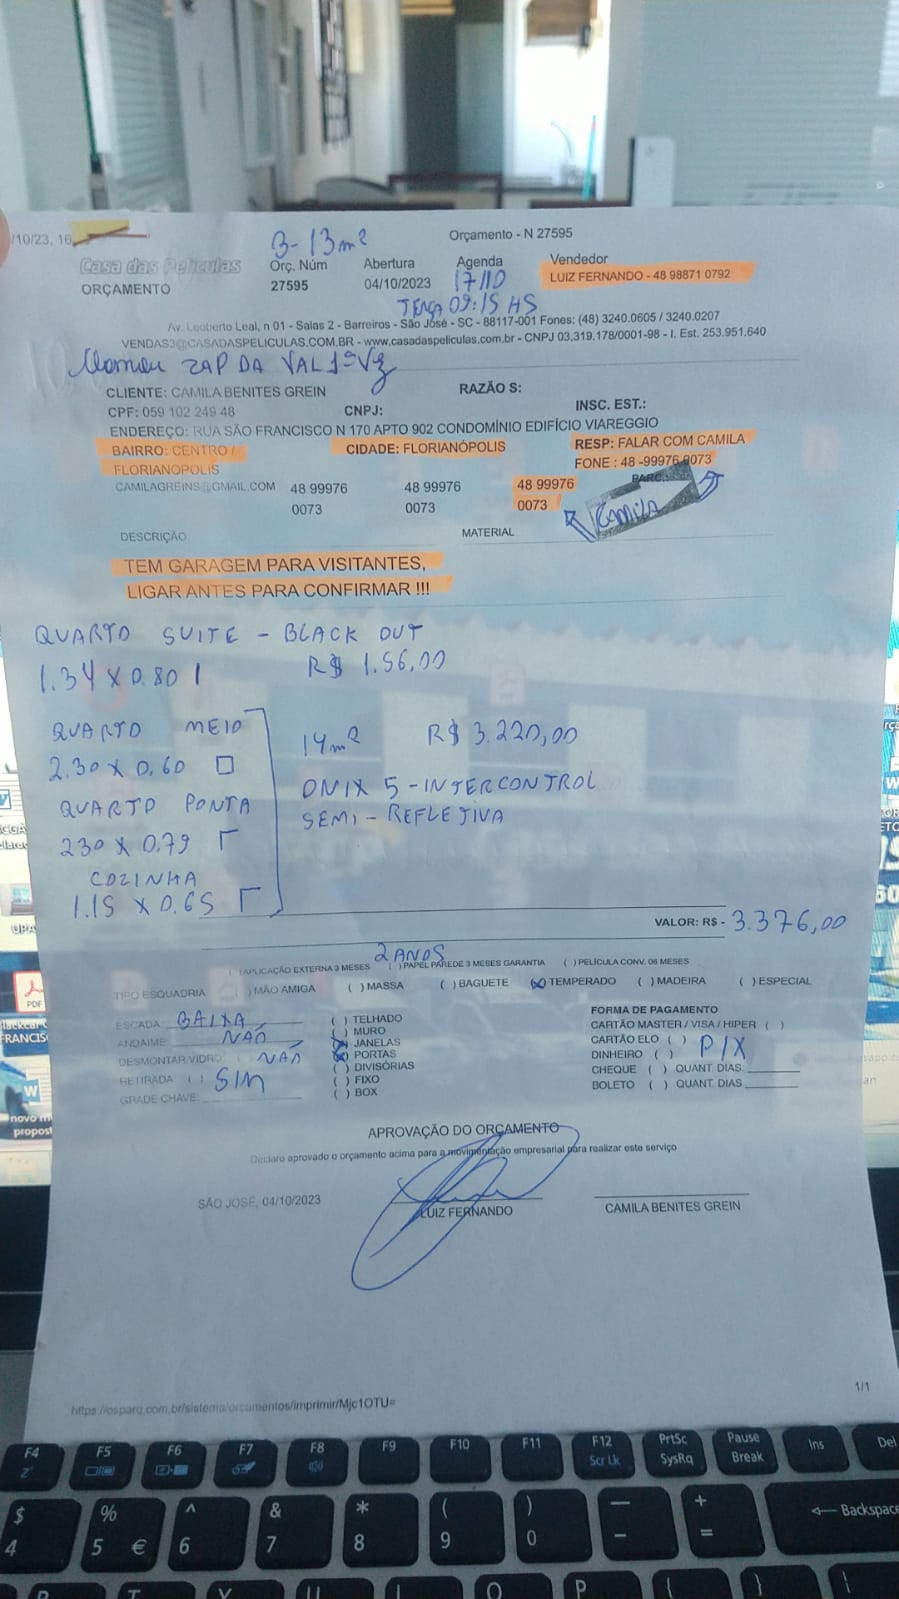 /10/23, 16
3-13m²
Orçamento - N 27595
Casa das Películas
ORÇAMENTO
Orç. Núm
Abertura
Agenda
Vendedor
27595
04/10/2023
17/10
LUIZ FERNANDO - 48 98871 0792
TERÇA 09:15 HS
Av. Leoberto Leal, n 01 - Salas 2 - Barreiros - São José - SC - 88117-001 Fones: (48) 3240.0605 / 3240.0207
VENDAS3@CASADASPELICULAS.COM.BR - www.casadaspeliculas.com.br - CNPJ 03.319.178/0001-98 - I. Est. 253.951.640
ZAP DA VAL 1ª Vz
CLIENTE: CAMILA BENITES GREIN
RAZÃO S:
CPF: 059 102 249 48
CNPJ:
INSC. EST.:
ENDEREÇO: RUA SÃO FRANCISCO N 170 APTO 902 CONDOMÍNIO EDIFÍCIO VIAREGGIO
BAIRRO: CENTRO /
FLORIANOPOLIS
CIDADE: FLORIANÓPOLIS
RESP: FALAR COM CAMILA
FONE : 48 -99976-0073
CAMILAGREINS@GMAIL.COM
48 99976
0073
48 99976
0073
48 99976
0073
PARC.:
CAMILA
DESCRIÇÃO
MATERIAL
TEM GARAGEM PARA VISITANTES,
LIGAR ANTES PARA CONFIRMAR !!!
QUARTO SUITE - BLACK OUT
1.34 X 0.80 1
R$ 1.56,00
QUARTO MEIO
2.30 X 0.60
14m²
R$ 3.220,00
QUARTO PONTA
230 X 0.79
ONIX 5 - INTERCONTROL
SEMI - REFLETIVA
COZINHA
1.15 X 0.65
VALOR: R$ - 3.376,00
2 ANOS
( )APLICAÇÃO EXTERNA 3 MESES ( )PAPEL PAREDE 3 MESES GARANTIA ( )PELÍCULA CONV. 06 MESES
TIPO ESQUADRIA ( )MÃO AMIGA ( ) MASSA ( ) BAGUETE (X) TEMPERADO ( ) MADEIRA ( ) ESPECIAL
ESCADA: BAIXA
ANDAIME: NÃO
DESMONTAR VIDRO: ( ) NÃO
RETIRADA ( ) SIM
GRADE CHAVE:
( ) TELHADO
( ) MURO
(X) JANELAS
(X) PORTAS
( ) DIVISÓRIAS
( ) FIXO
( ) BOX
FORMA DE PAGAMENTO
CARTÃO MASTER / VISA / HIPER ( )
CARTÃO ELO ( )
DINHEIRO ( ) PIX
CHEQUE ( ) QUANT DIAS:
BOLETO ( ) QUANT DIAS
APROVAÇÃO DO ORÇAMENTO
Declaro aprovado o orçamento acima para a movimentação empresarial para realizar este serviço
SÃO JOSÉ, 04/10/2023
LUIZ FERNANDO
CAMILA BENITES GREIN
1/1
https://osparq.com.br/sistema/orcamentos/imprimir/Mjc1OTU=
PDF
FRANCIS
novo m
propost
F4 F5 F6 F7 F8 F9 F10 F11 F12 PrtSc Pause Ins Del
Scr Lk SysRq Break
$ % ^ & * ( ) — + Backspace
4 5 € 6 7 8 9 0 - =